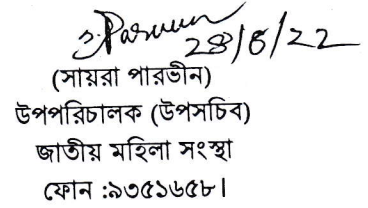 S. Parveen
28/8/22
(সায়রা পারভীন)
উপপরিচালক (উপসচিব)
জাতীয় মহিলা সংস্থা
ফোন :৯৩৫১৬৫৮।